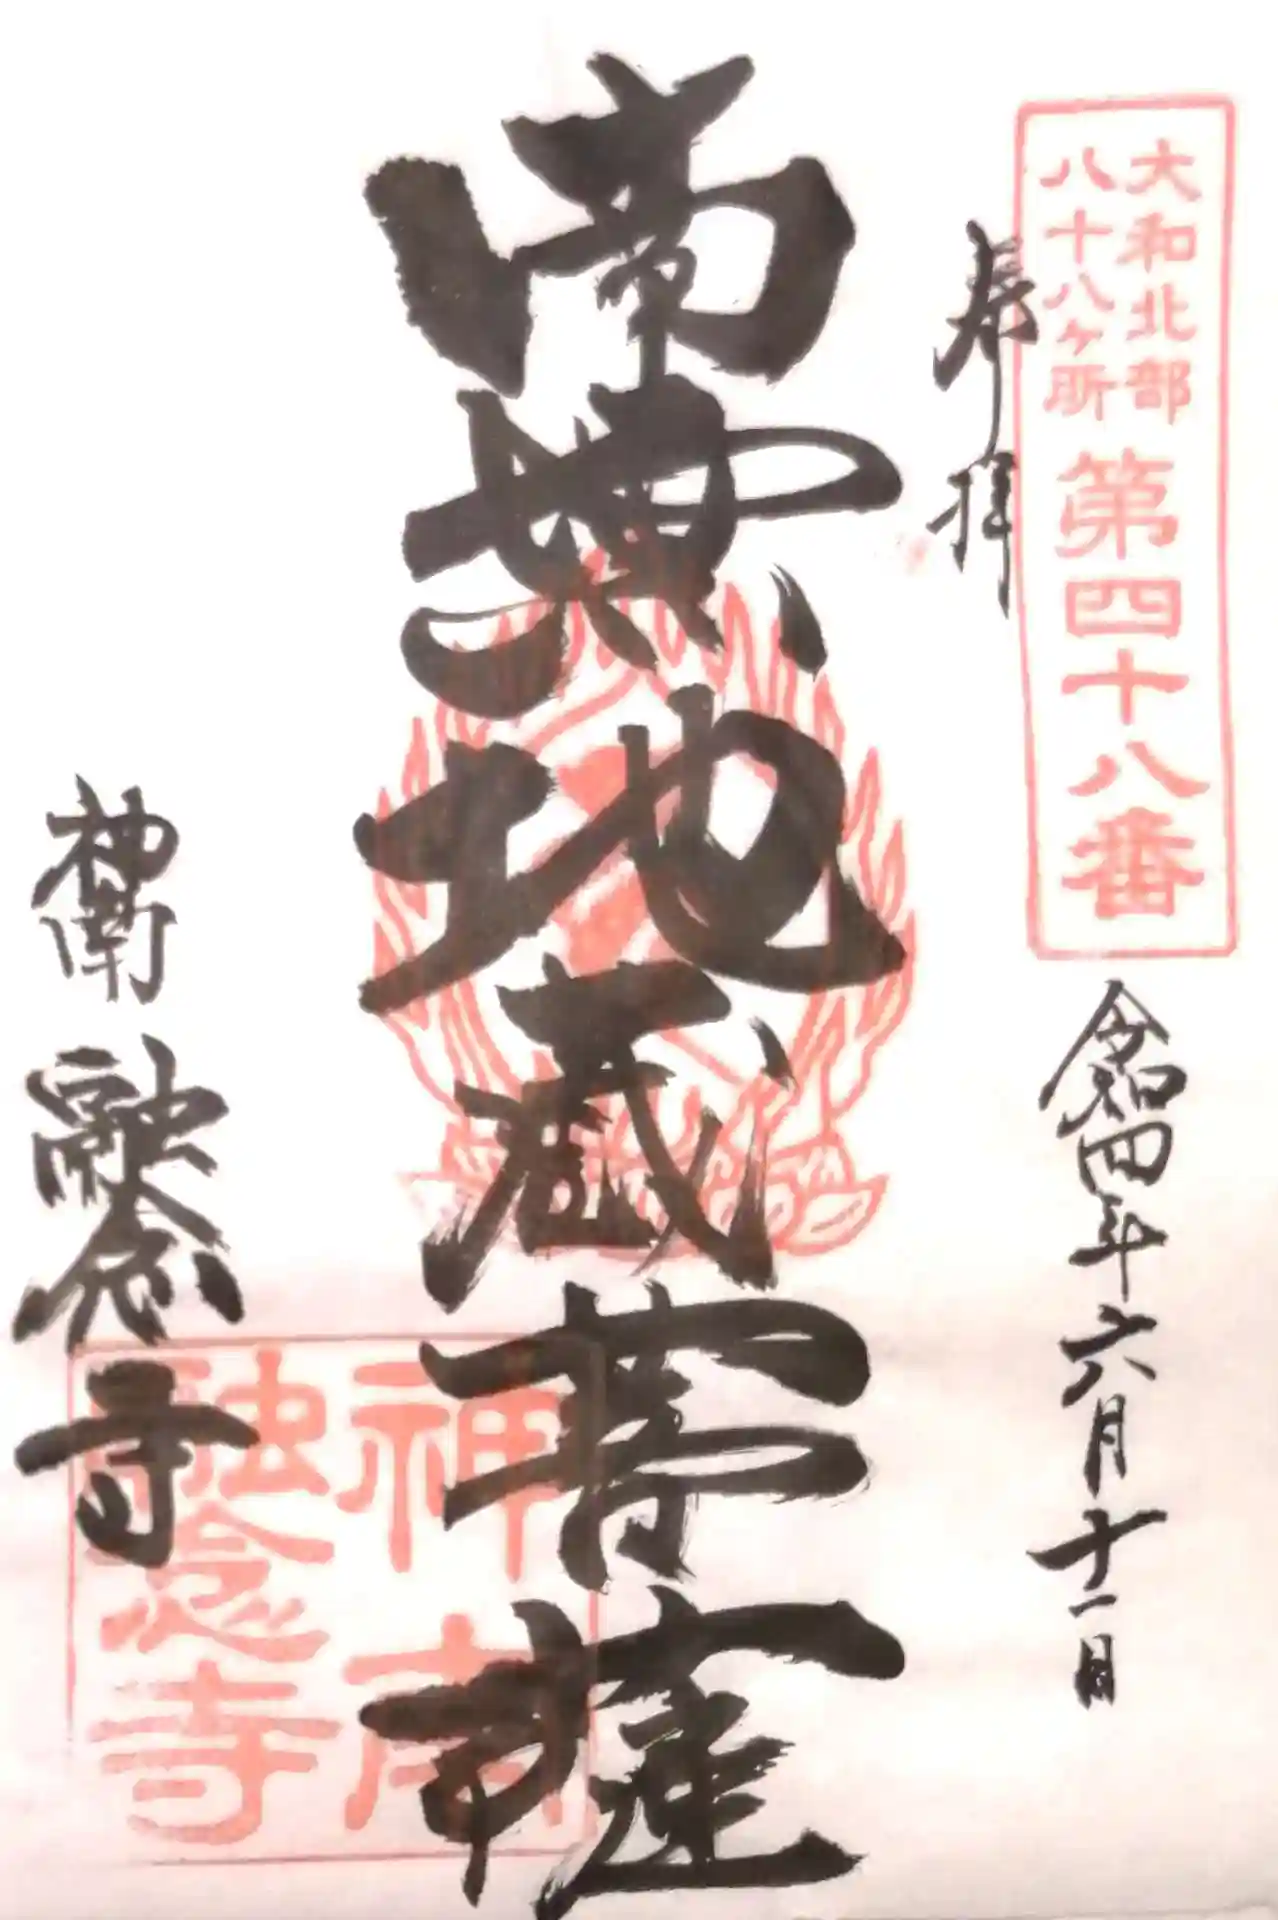 大和北部
八十八ヶ所
第四十八番
奉拝
令和四年六月十一日
南無地蔵菩薩
神南 融念寺
神南
融念寺